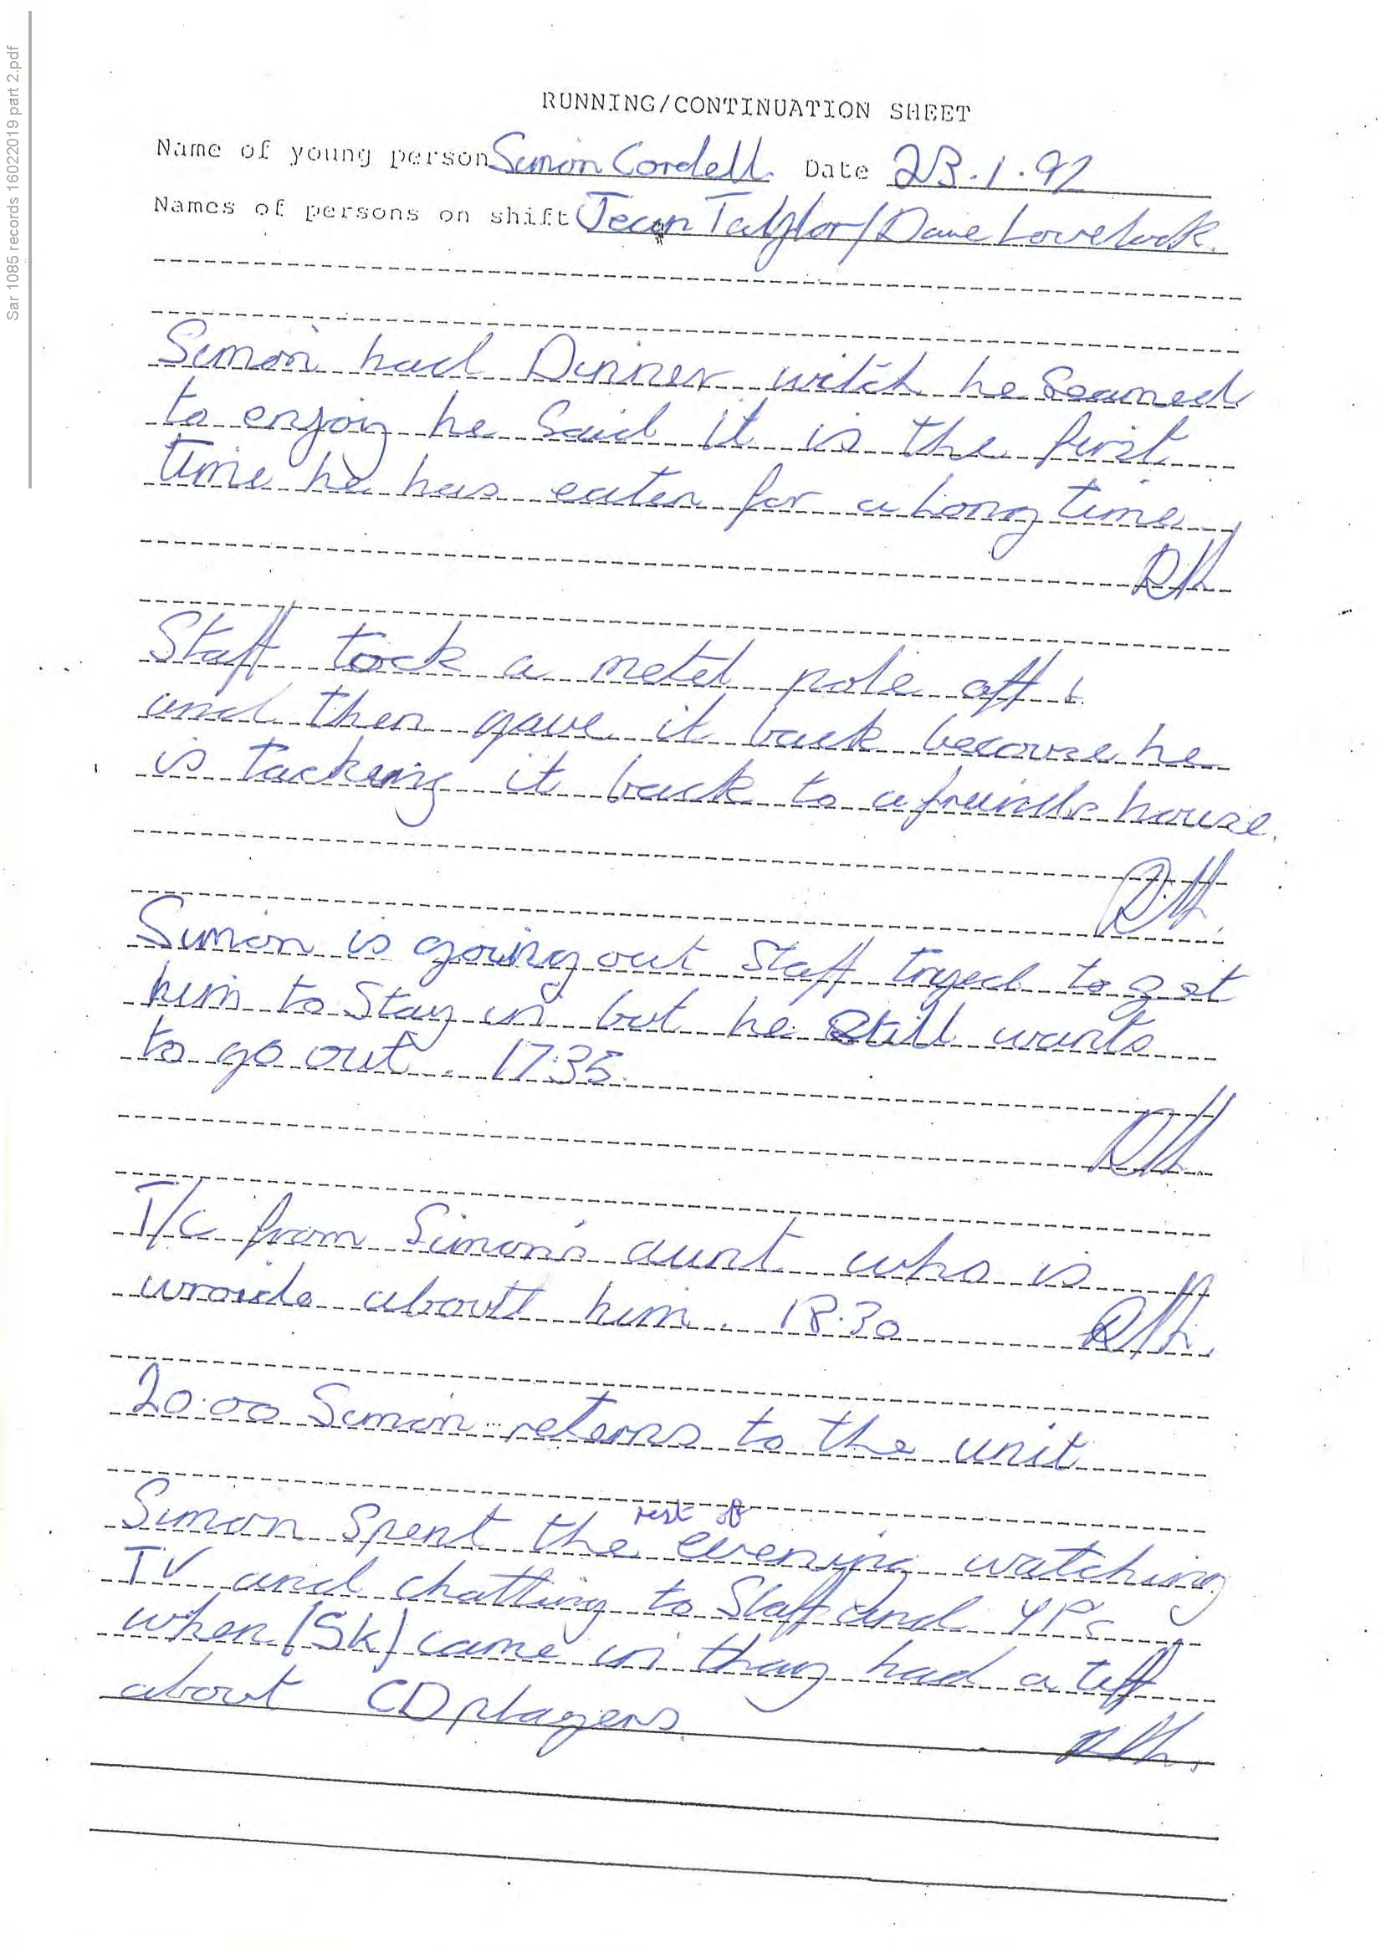 Sar 1085 records 16022019 part 2.pdf
RUNNING/CONTINUATION SHEET
Name of young person Simon Cordell Date 23.1.92
Names of persons on shift Jean Taylor/Dave Lovelock.
Simon had Dinner witch he seamed
to enjoy he said it is the first
time he has eaten for a long time
Staff took a metel pole off
and then gave it back becouse he
is tackeing it back to a freinds house.
Simon is going out Staff tryed to get
him to Stay in but he still wants
to go out. 17:35.
T/C from Simon's aunt who is
about him. 18.30
20.00 Simon reterns to the unit
rest of
Simon spent the evening watching
TV and chatting to Staff and YPs
when (SK) came in thay had a tiff
about CD players.